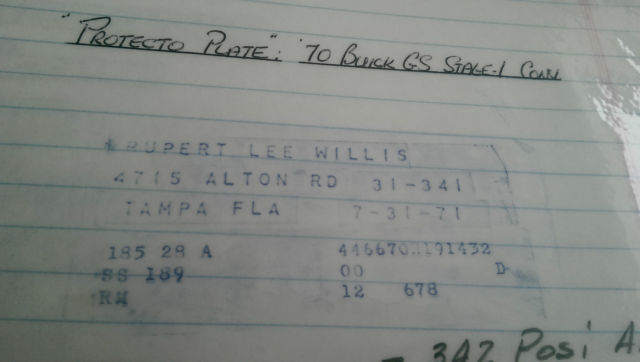 "PROTECTO PLATE": '70 BUICK GS STAGE-1 CONV
*RUPERT LEE WILLIS
4715 ALTON RD 31-341
TAMPA FLA 7-31-71
185 28 A 446670..191432
SS 189 00 D
RH 12 678
- 3A2 POSI A